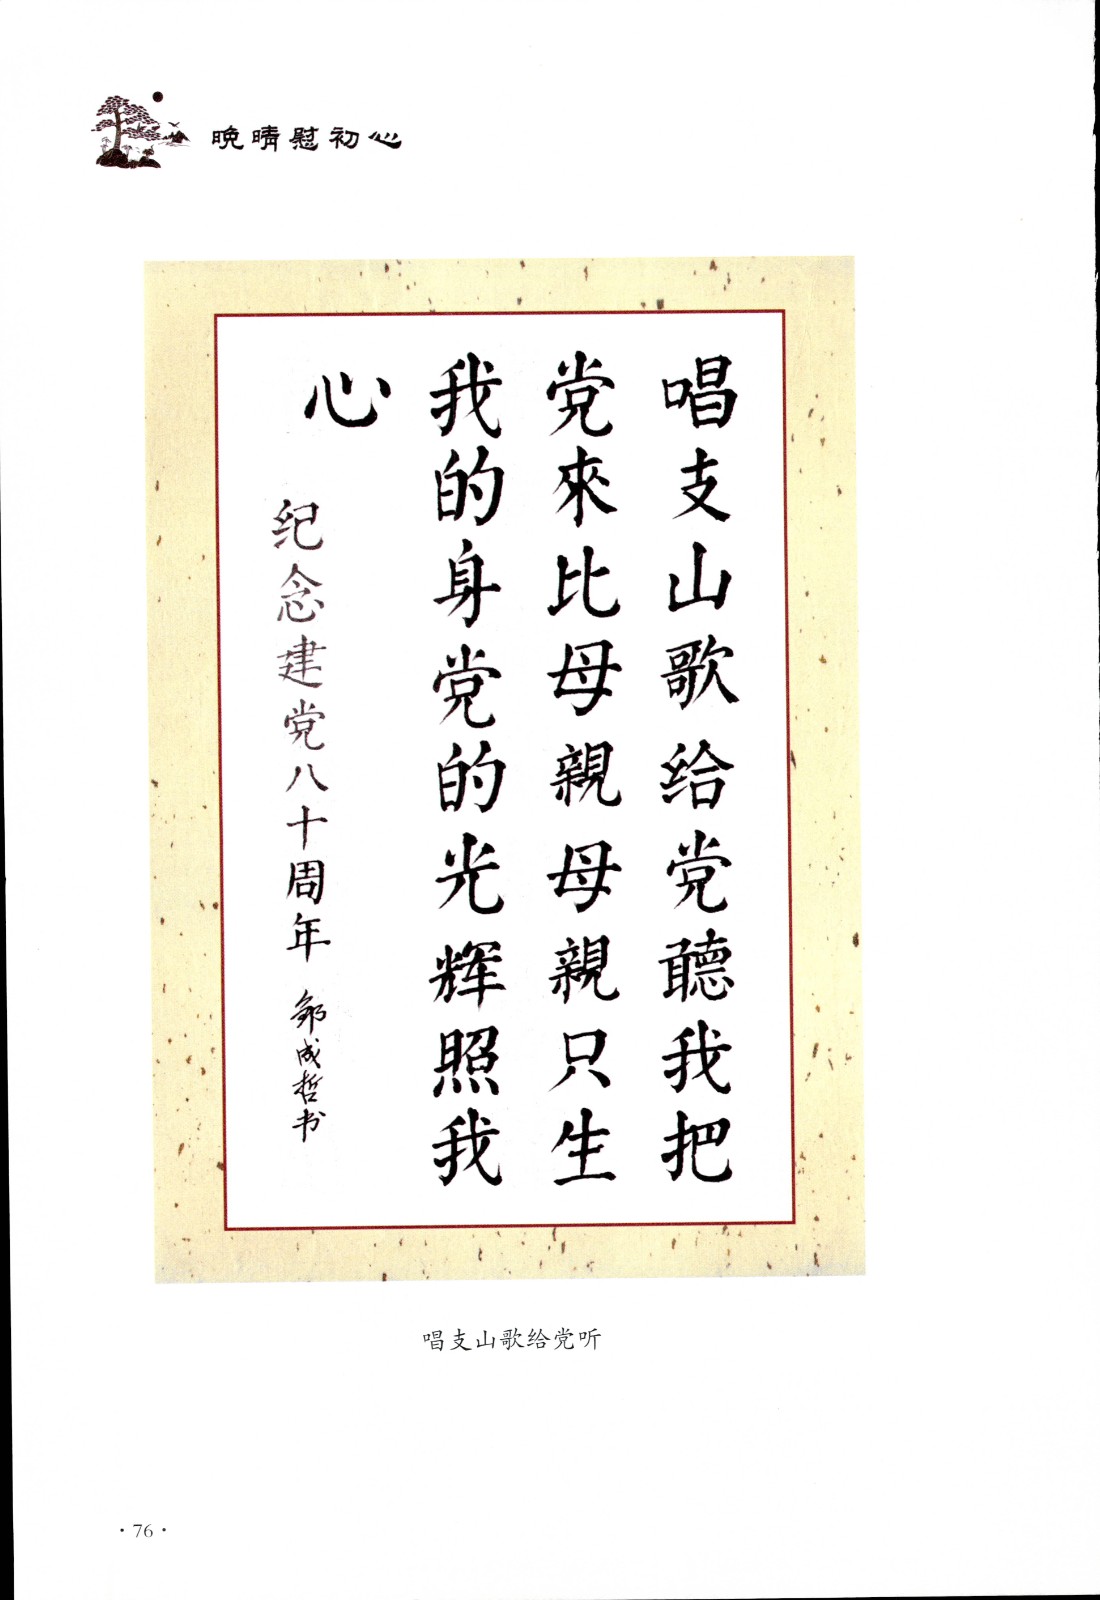 晚晴慰初心
唱支山歌给党聽我把
党來比母親母親只生
我的身党的光辉照我
心
纪念建党八十周年 邹成哲书
唱支山歌给党听
·76·